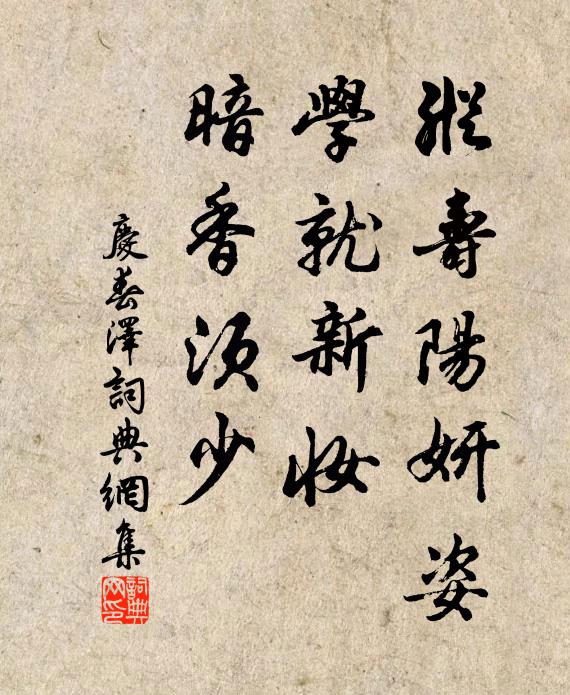 縱壽陽妍姿
學就新妝
暗香須少
慶春澤詞典網集
詞典網印